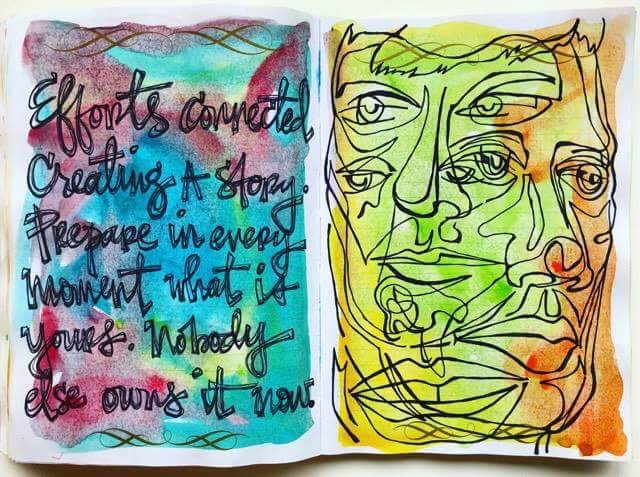 Efforts connected
Creating A story.
Prepare in every
moment what is
yours. Nobody
else owns it now.